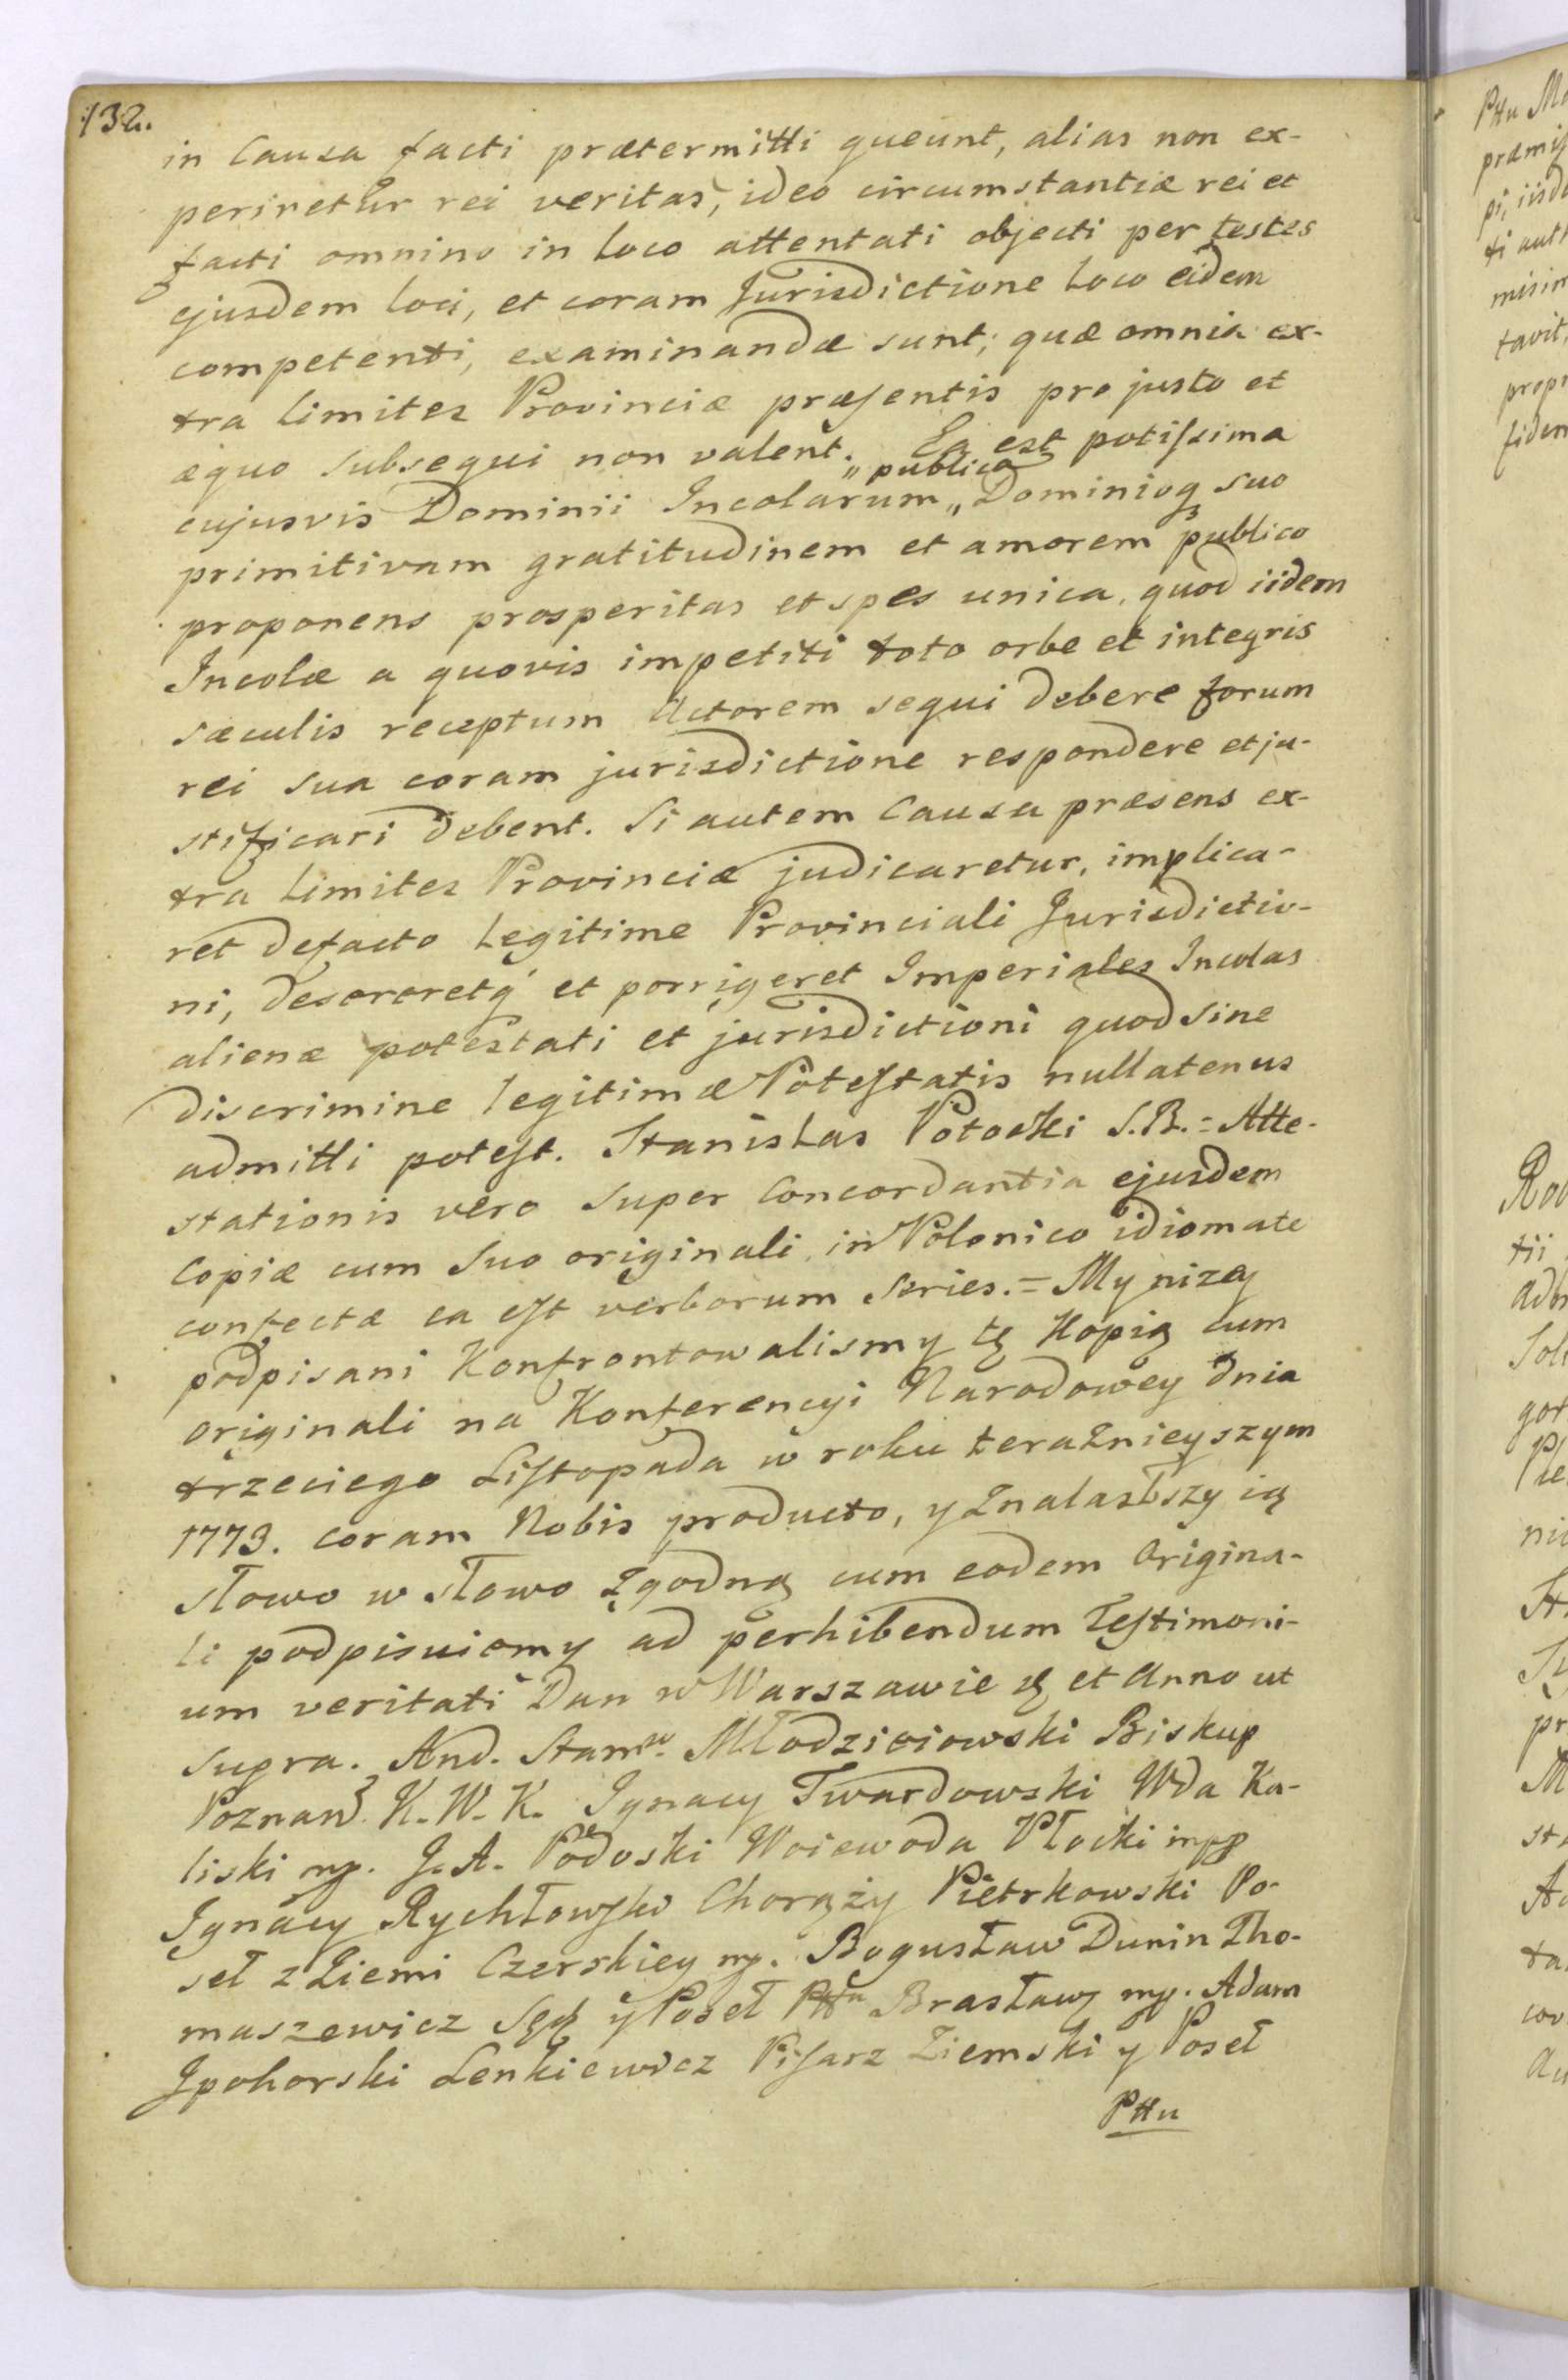 132.
in Causa facti prætermitti queunt, alias non ex-
periretur rei veritas, ideo circumstantiæ rei et
facti omnino in loco attentati objecti per testes
ejusdem loci, et coram Jurisdictione loco eidem
competenti, examinandæ sunt; quæ omnia ex-
tra limites Provinciæ præsentis pro justo et
æquo subsequi non valent. Ea est potissima
cujusvis Dominii Incolarum „ publica „ Dominioq suo
primitivam gratitudinem et amorem publico
proponens prosperitas et spes unica, quod iidem
Incolæ a quovis impetiti toto orbe et integris
sæculis receptum Actorem sequi debere forum
rei sua coram jurisdictione respondere et ju-
stificari debent. Si autem Causa præsens ex-
tra limites Provinciæ judicaretur, implica-
ret defacto legitime Provinciali Jurisdictio-
ni, desereretq et porrigeret Imperiales Incolas
alienæ potestati et jurisdictioni quod sine
discrimine legitimæ Potestatis nullatenus
admitti potest. Stanislas Potocki S.R. = Atte-
stationis vero super Concordantia ejusdem
Copiæ cum suo originali in Polonico idiomate
confectæ ea est verborum series. = My nizey
podpisani Konfrontowalismy tę Kopią cum
originali na Konferencyi Narodowey dnia
trzeciego Listopada w roku teraznieyszym
1773. coram Nobis producto, y znalazłszy ią
słowo w słowo zgodną cum eodem Origina-
li podpisuiemy ad perhibendum Testimoni-
um veritati Dan w Warszawie et Anno ut
supra. And. Stanw. Młodzieiowski Biskup
Poznan K. W. K. Ignacy Twardowski Wda Ka-
liski mp. J. A. Podoski Woiewoda Płocki mpp
Ignacy Rychłowski Chorąży Pietrkowski Po-
seł z Ziemi Czerskiey mp. Bogusław Dunin Tho-
maszewicz Sęd y Poseł Pttu Brasław mp. Adam
Jpohorski Lenkiewicz Pisarz Ziemski y Poseł
Pttu